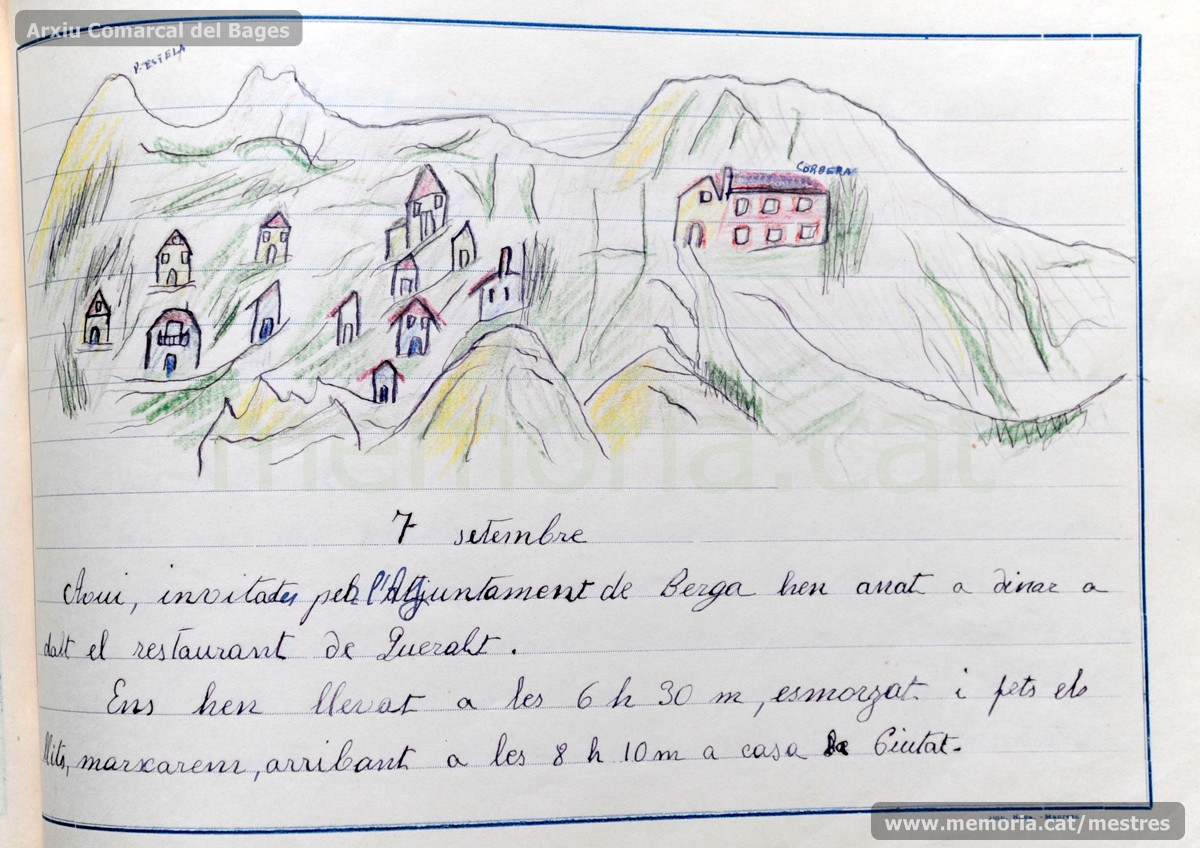 Arxiu Comarcal del Bages
P. ESTELA
CORBERA
memoria.cat
7 setembre
Avui, invitades per l'Ajuntament de Berga hen anat a dinar a
dalt el restaurant de Queralt.
Ens hen llevat a les 6 h 30 m, esmorzat i fets els
llits, marxarem, arribant a les 8 h 10 m a casa la Ciutat.
www.memoria.cat/mestres